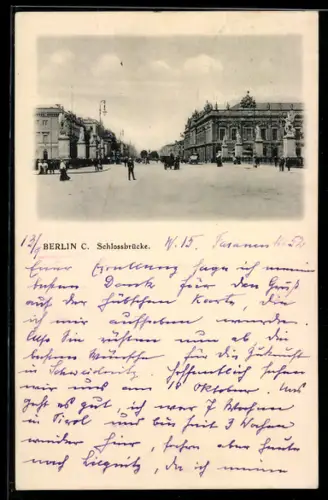 BERLIN C. Schlossbrücke.
13/9 W. 15. Fasanenstr. 52
Euer Ich sage ich meinen
besten Dank für den Gruß
auf der hübschen Karte, die
ich mir aufheben werde.
Also Sie rüsten nun ab, die
besten Wünsche für die Zukunft
in Schweidnitz. Hoffentlich sehen
wir uns am 10 Oktober. Uns
geht es gut, ich war 7 Wochen
in Tirol und bin seit 3 Wochen
wieder hier, fahre aber heute
nach Liegnitz, da ich meine